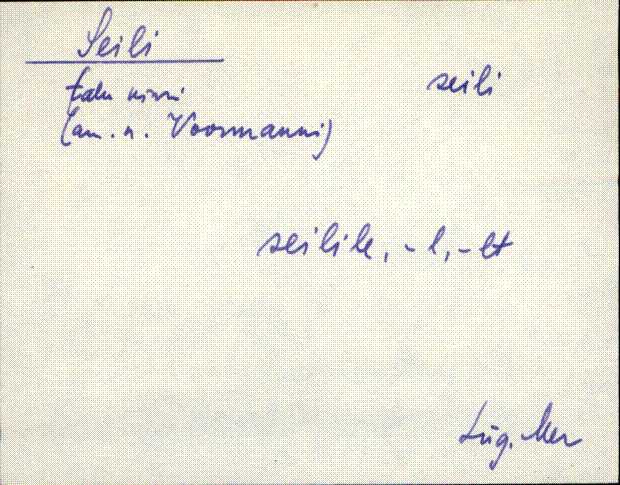 Seili
seili
talu nimi
(am. n. Voormanni)
seilile, -l, -lt
Lüg. Mer